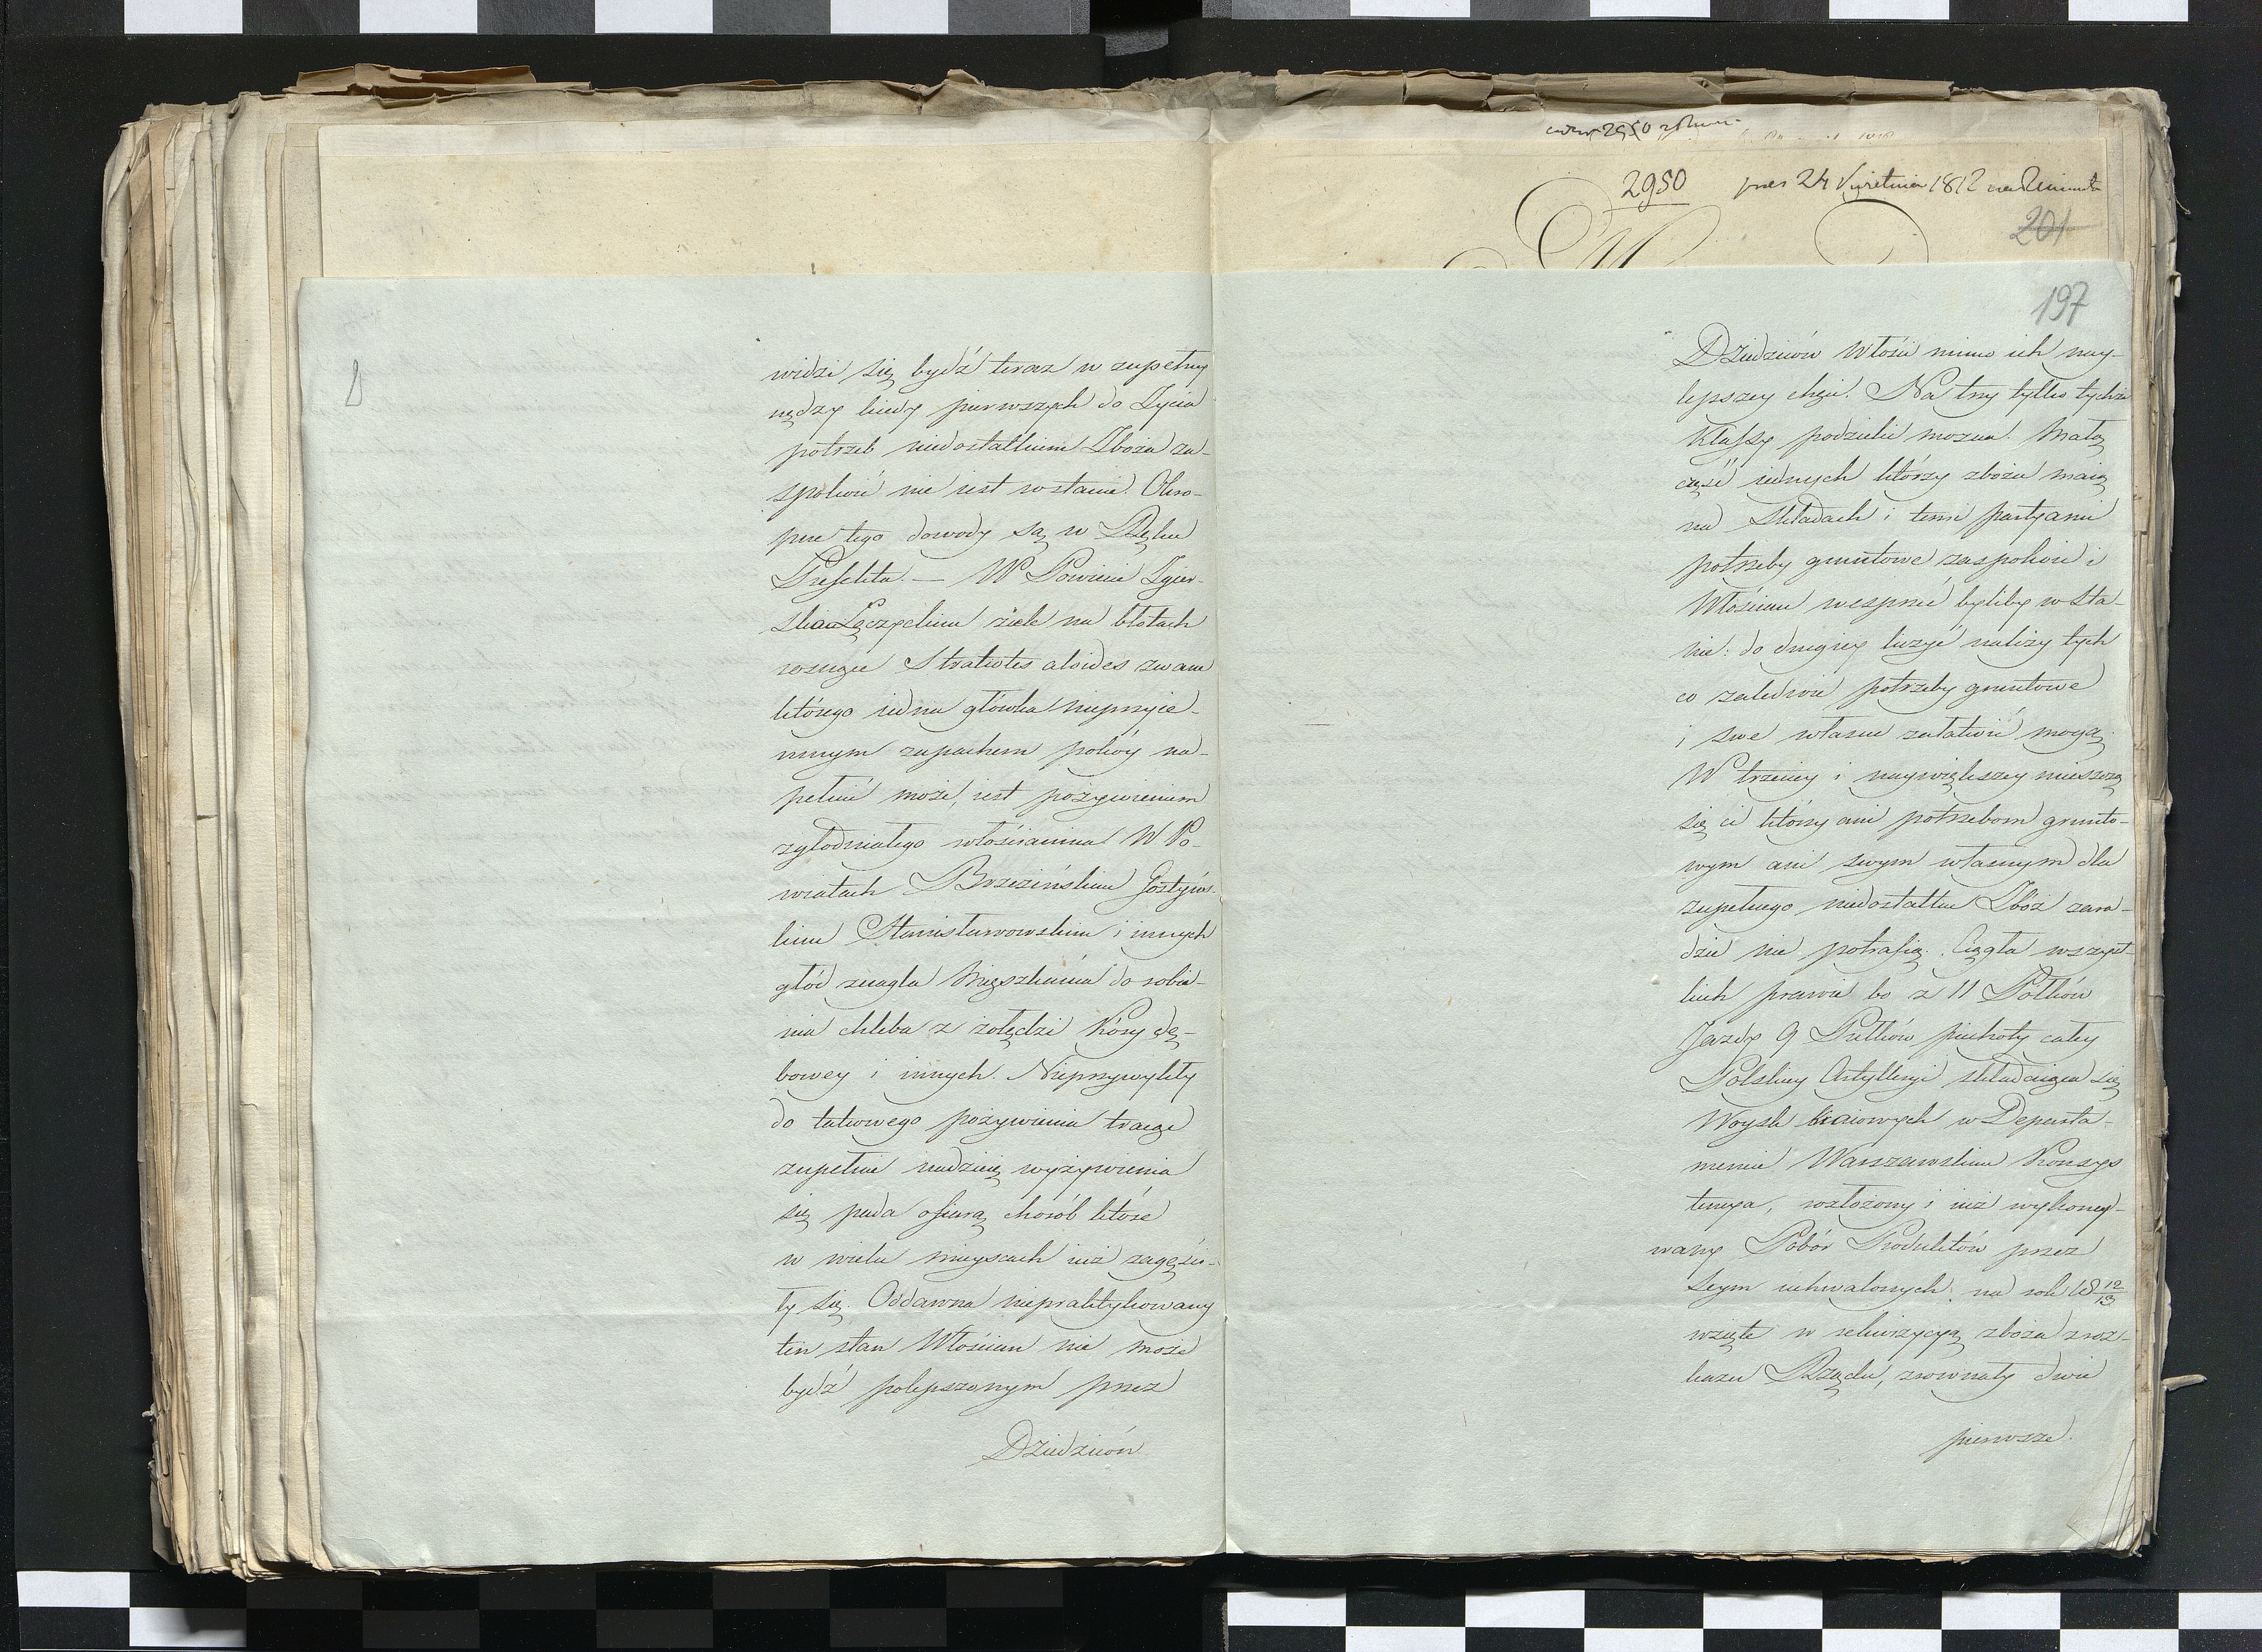 widzi się bydź teraz w zupełney
nędzy kiedy pierwszych do Życia
potrzeb niedostatkiem Zboża za-
spokoić nie iest wstanie. Okro-
pne tego dowody są w Ręku
Prefekta. — W Powiecie Zgier-
skim Łęczyckim ziele na błotach
rosnące Stratiotes aloides zwane
którego iedna główka nieprzyie-
mnym zapachem pokóy na-
pełnić może, iest pożywieniem
zgłodniałego włościanina W Po-
wiatach Brzezińskim Gostyńs-
kim Stanisławowskim i innych
głód znagla Mięszkańca do robie-
nia chleba z żołędzi Kory dę-
bowey i innych. Nieprzywykły
do takowego pożywienia tracąc
zupełnie nadzieię wyżywienia
się pada ofiarą chorób które
w wielu mieyscach iuż zagęści-
ły się. Oddawna niepraktykowany
ten stan Włościan nie może
bydź polepszonym przez
Dziedziców
2950 24 Kwietnia 1812
201
197
Dziedziców Włości mimo ich nay-
lepszey chęci. Na trzy tylko tychże
Klassy podzielić można. Małą
część iednych którzy zboża maią
na Składach i temi partyami
potrzeby gruntowe zaspokoić i
Włościan wesprzeć byliby w sta-
nie: do drugiey liczyć należy tych
co zaledwie potrzeby gruntowe
i swe własne załatwić mogą.
W trzeciey i naywiększey mieszczą
się ci którzy ani potrzebom grunto-
wym ani swym własnym dla
zupełnego niedostatku Zbóż zara-
dzić nie potrafią. Ciągła wszyst-
kich prawie bo z 11 Półków
Jazdy 9 Pułków piechoty całey
Polskiey Artylleryi składaiąca się
Woysk kraiowych w Departa-
mencie Warszawskim Konsys
tencya, rozłożony i iuż wykony-
wany Pobór Produktów przez
Seym uchwalonych na rok 18 12/13
wzięte w rekwizycyą zboża z roz-
kazu Rządu, zrównały dwie
pierwsze.